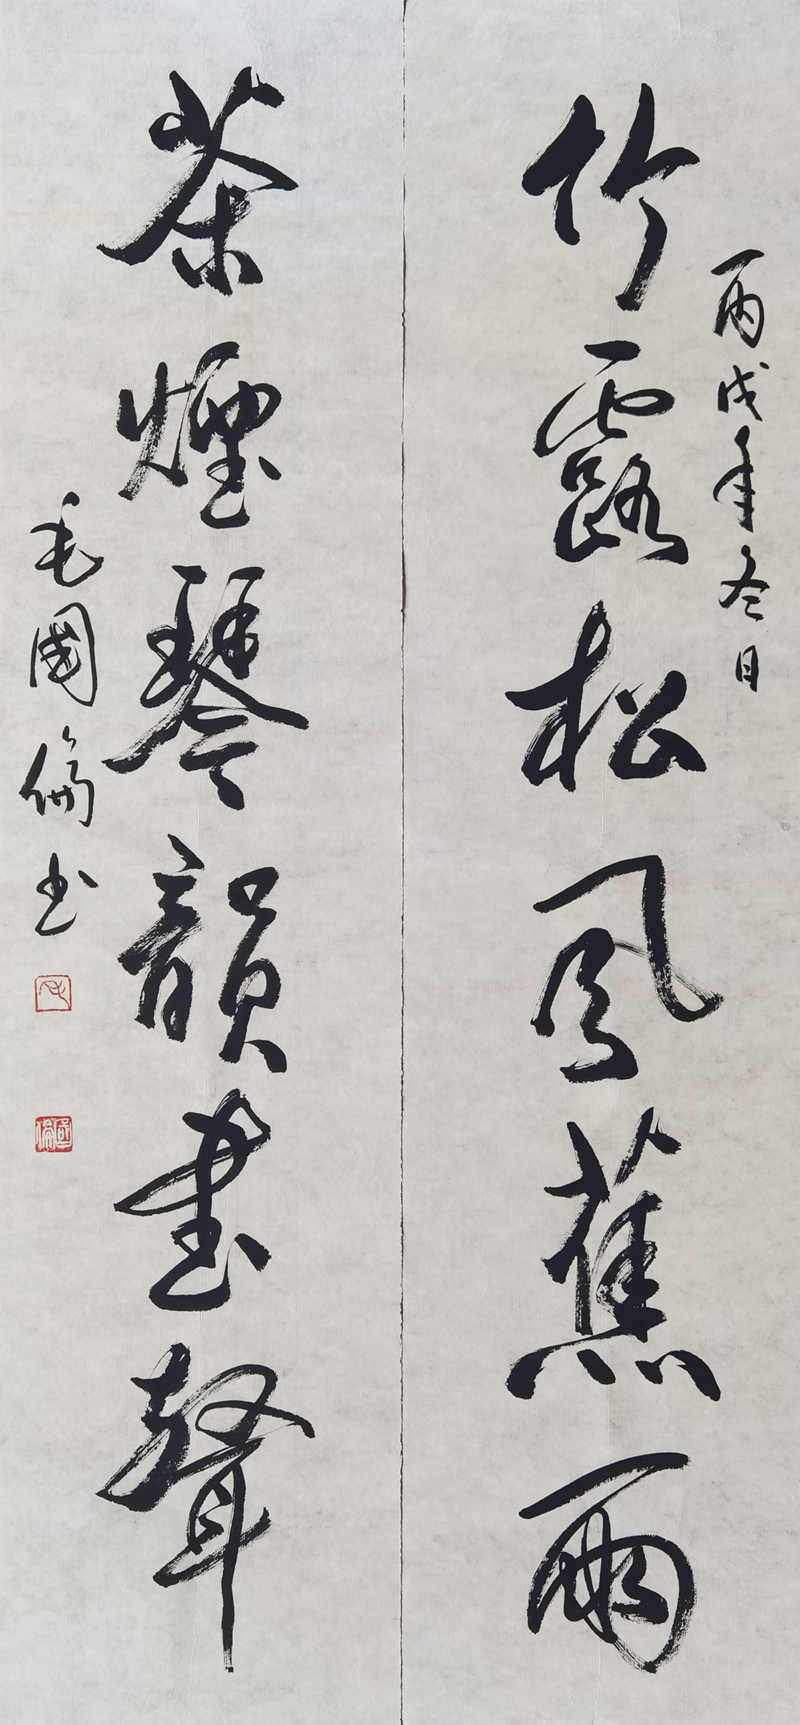 丙戌年冬日
竹露松風蕉雨
茶煙琴韻書聲
毛國倫书
毛
國倫